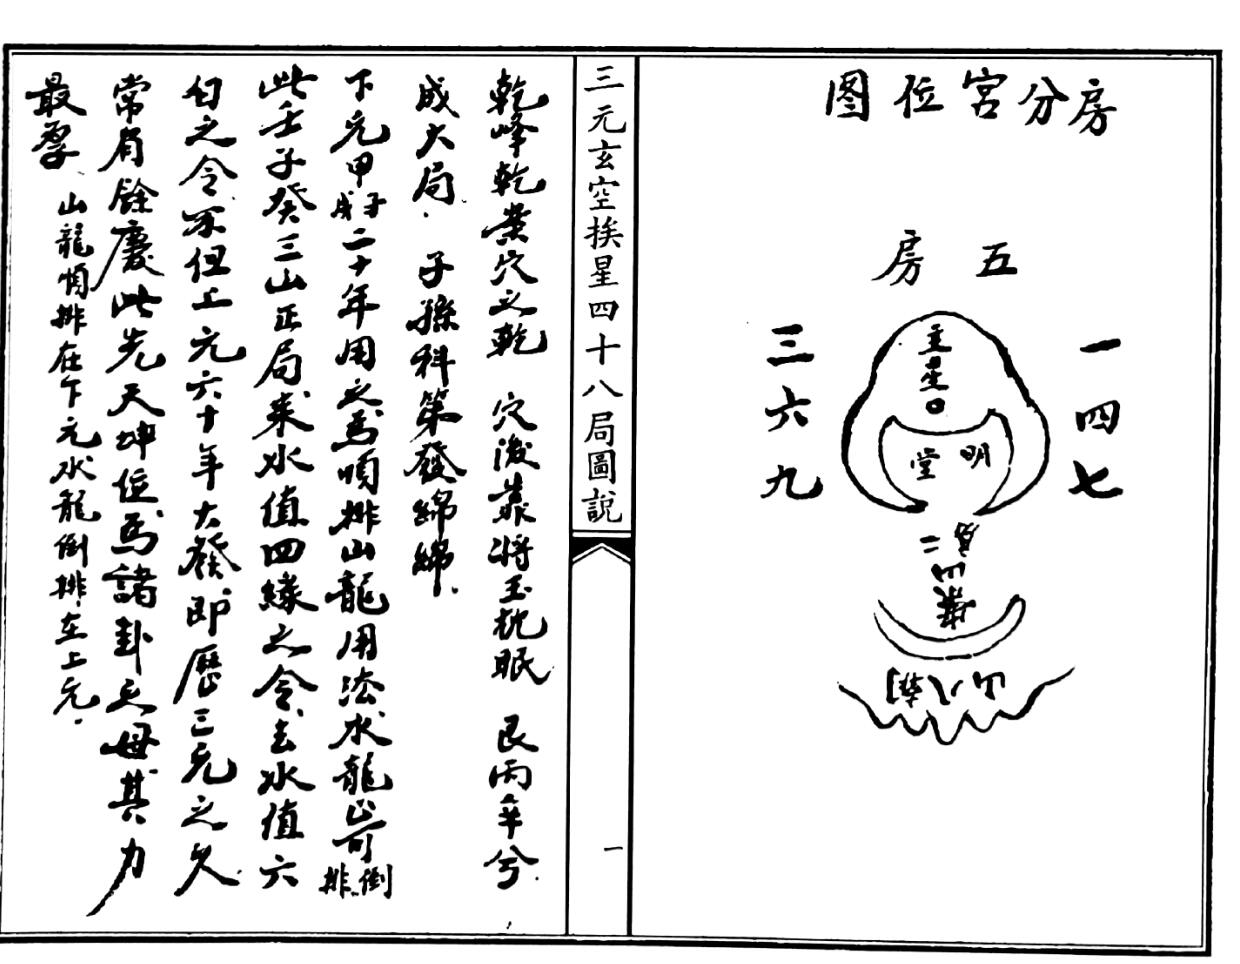 房分宮位图
五房
一四七
三六九
主星
明堂
三元玄空挨星四十八局圖說
一
乾峰乾 穴之乾 穴後靠將玉枕眠 艮丙辛兮
成大局 子孫科第發綿綿
下元甲子甲戌二十年用之為順排山龍用法水龍 倒排
此壬子癸三山正局來水值四緣之令去水值六
白之令不但上元六十年大發即歷三元之久
常有餘慶此先天坤位為諸卦之母其力
最厚 山龍順排在下元水龍倒排在上元